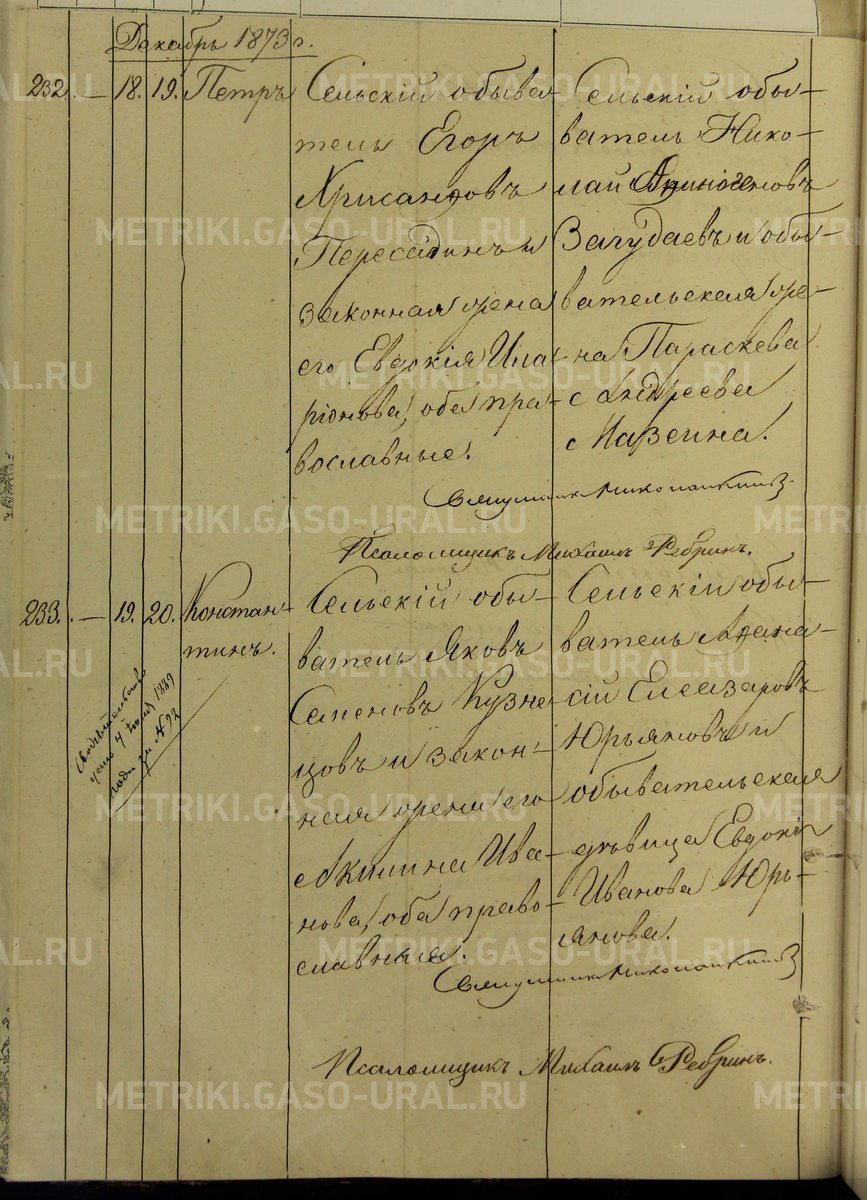 Декабрь 1873 г.
232. — 18. 19. Петръ
Сельскій обыва-
тель Егоръ
Хрисанфовъ
Пересадинъ и
законная жена
его Евдокія Ила-
ріонова, оба пра-
вославные.
Сельскій обы-
ватель Нико-
лай Афиногеновъ
Загудаевъ и обы-
вательская же-
на Параскева
Андреева
Мазеина.
Священникъ
Псаломщикъ Михаилъ Ребринъ.
233. — 19. 20. Констан-
тинъ.
Сельскій обы-
ватель Яковъ
Семеновъ Кузне-
цовъ и закон-
ная жена его
Акилина Ива-
нова, оба право-
славныя.
Сельскій обы-
ватель Афана-
сій Елеазаровъ
Юрьяновъ и
обывательская
дѣвица Евдокія
Иванова Юрь-
янова.
Свидѣтельство
1889
года за № 92
Священникъ
Псаломщикъ Михаилъ Ребринъ.
METRIKI.GASO-URAL.RU